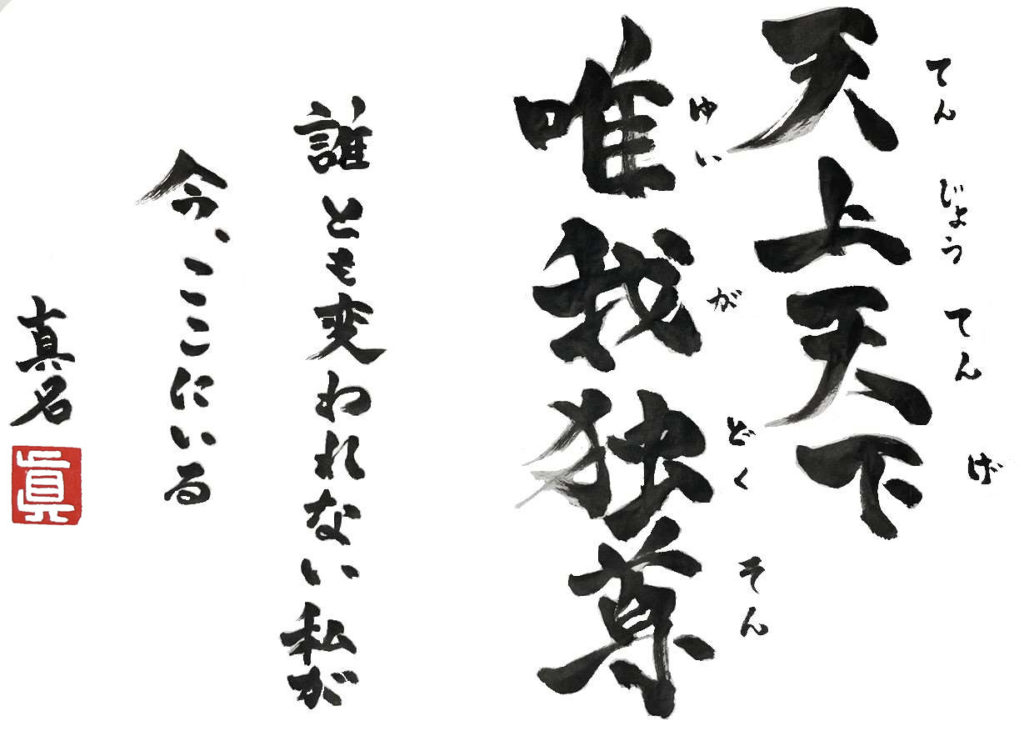 てんじょうてんげ
天上天下
ゆいがどくそん
唯我独尊
誰とも変われない私が
今、ここにいる
真名
眞